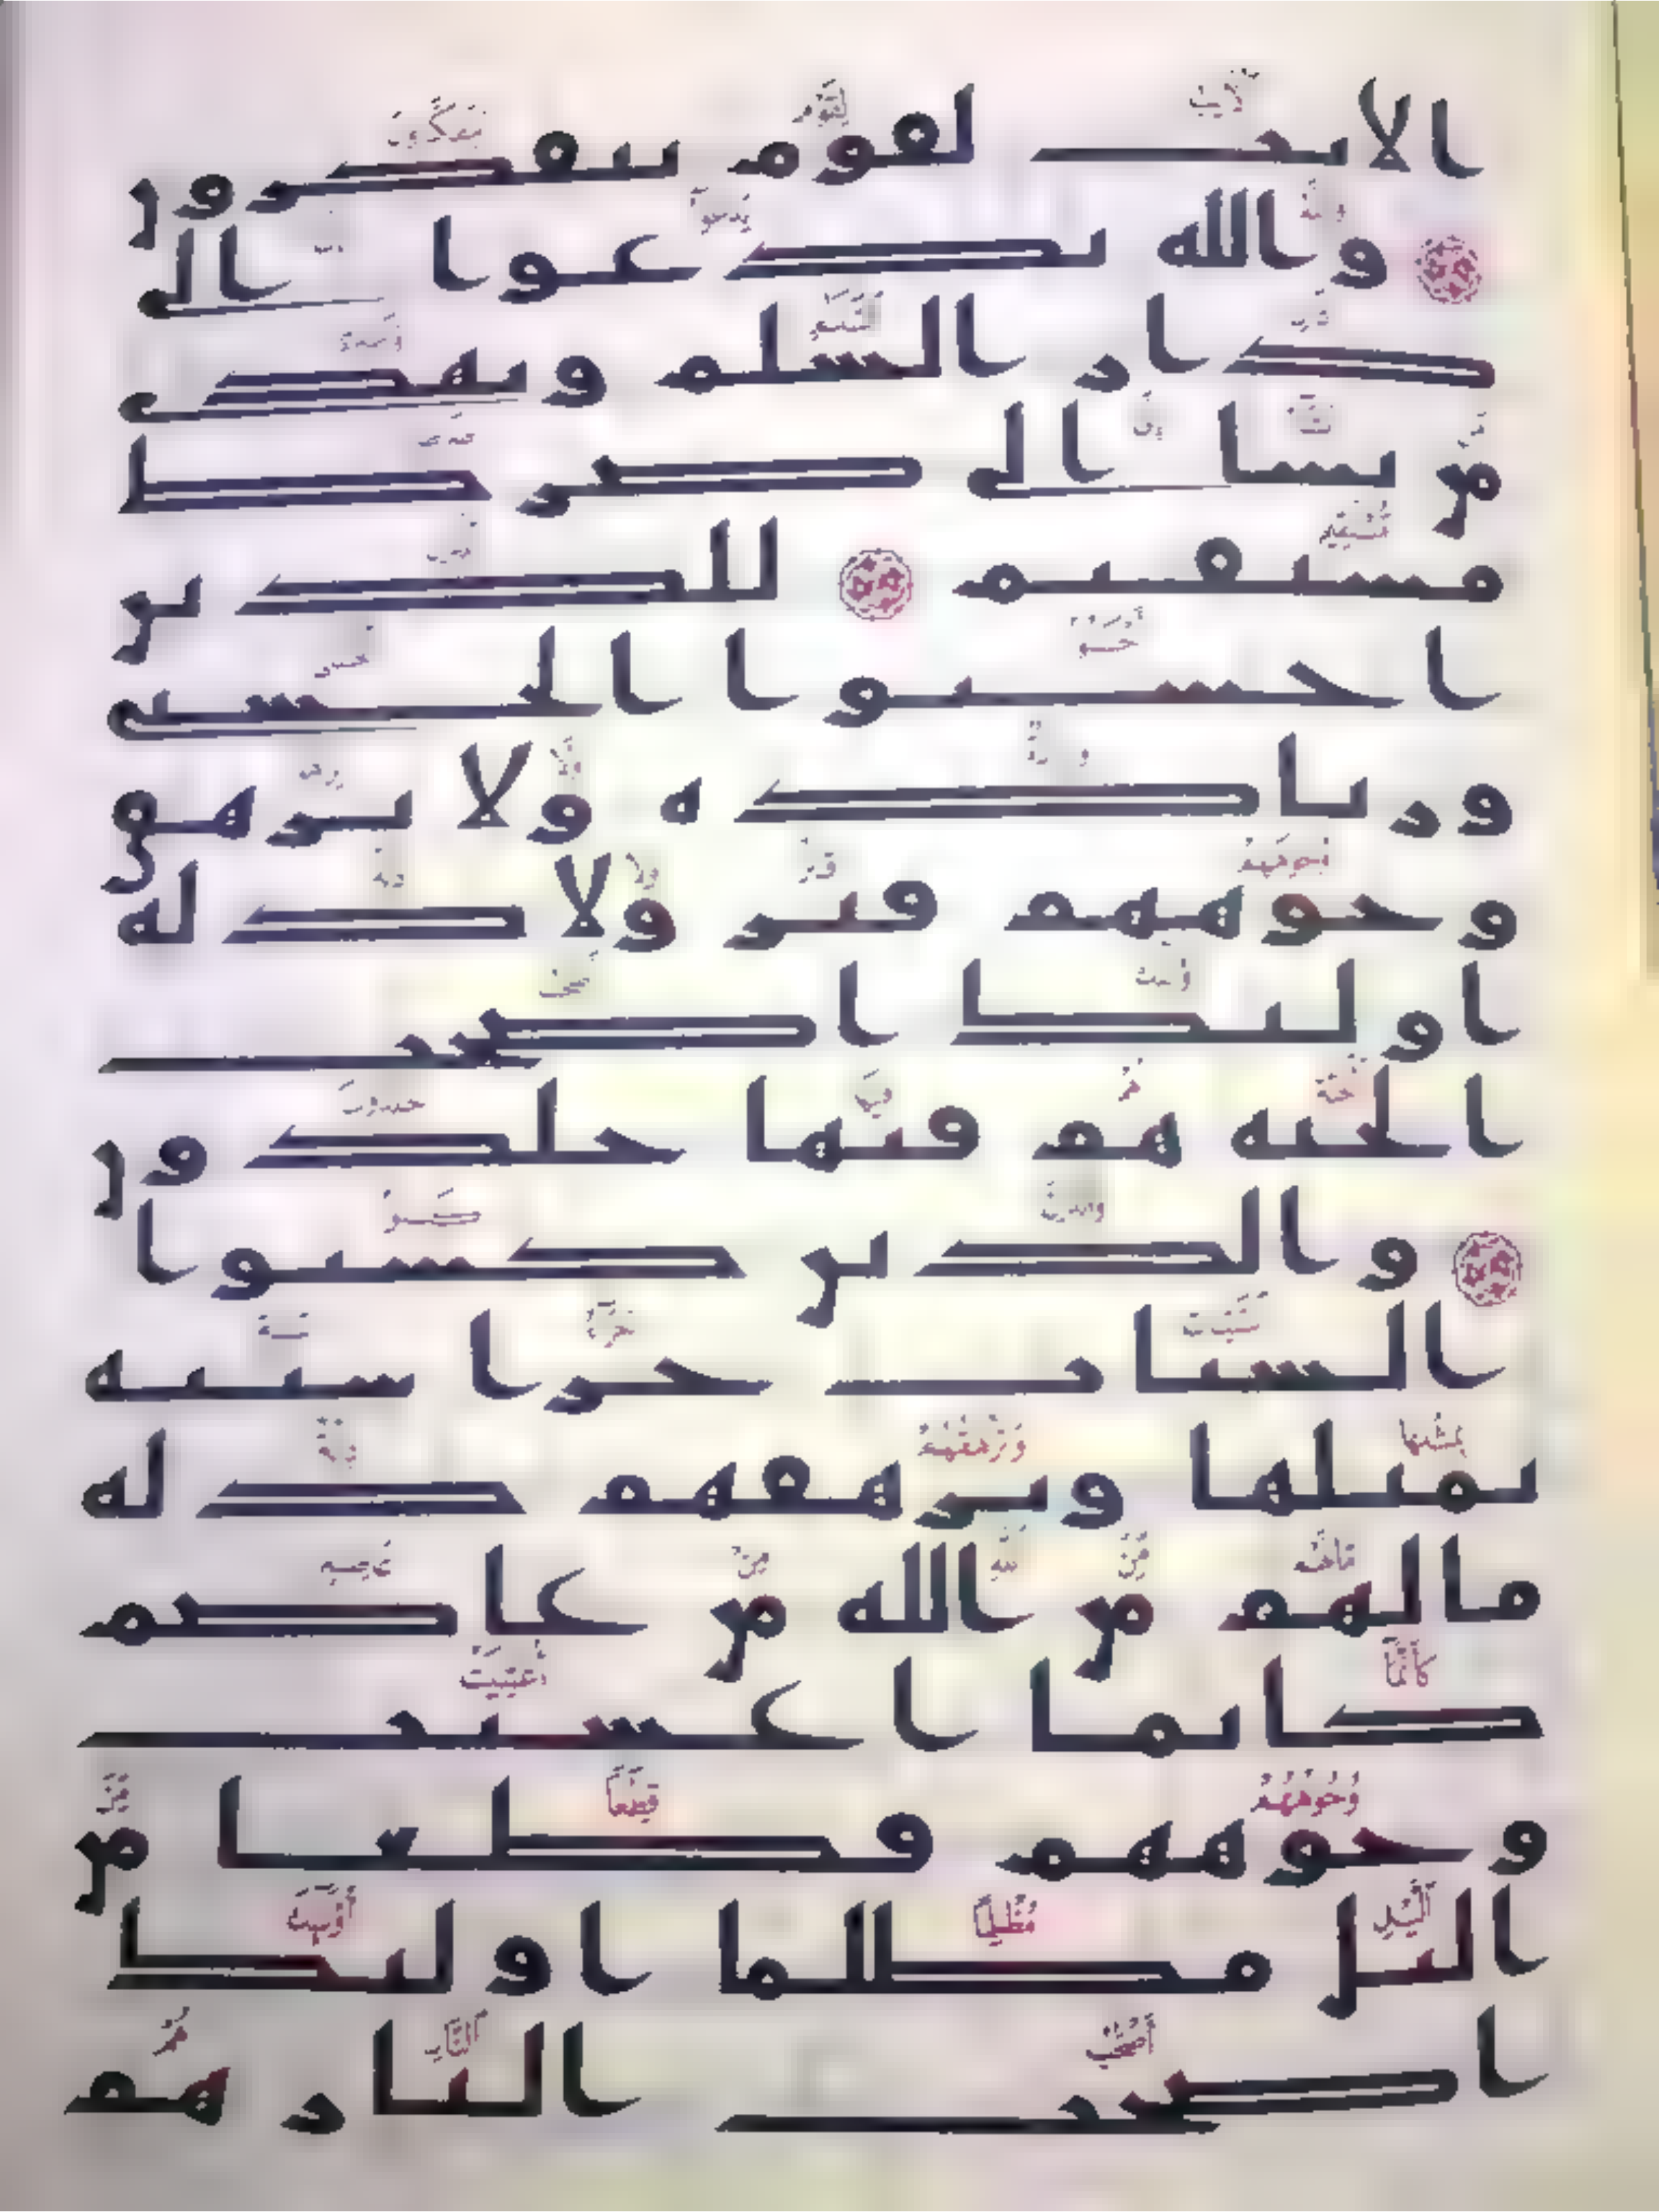 الايت لقوم يتفكرون
والله يدعوا الى
دار السلم ويهدى
من يشا الى صرط
مستقيم للذين
احسنوا الحسنى
وزياده ولا يرهق
وجوههم قتر ولا ذله
اوليك اصحب
الجنه هم فيها خلدون
والذين كسبوا
السيات جزا سييه
بمثلها وترهقهم ذله
مالهم من الله من عاصم
كانما اغشيت
وجوههم قطعا من
اليل مظلما اوليك
اصحب النار هم